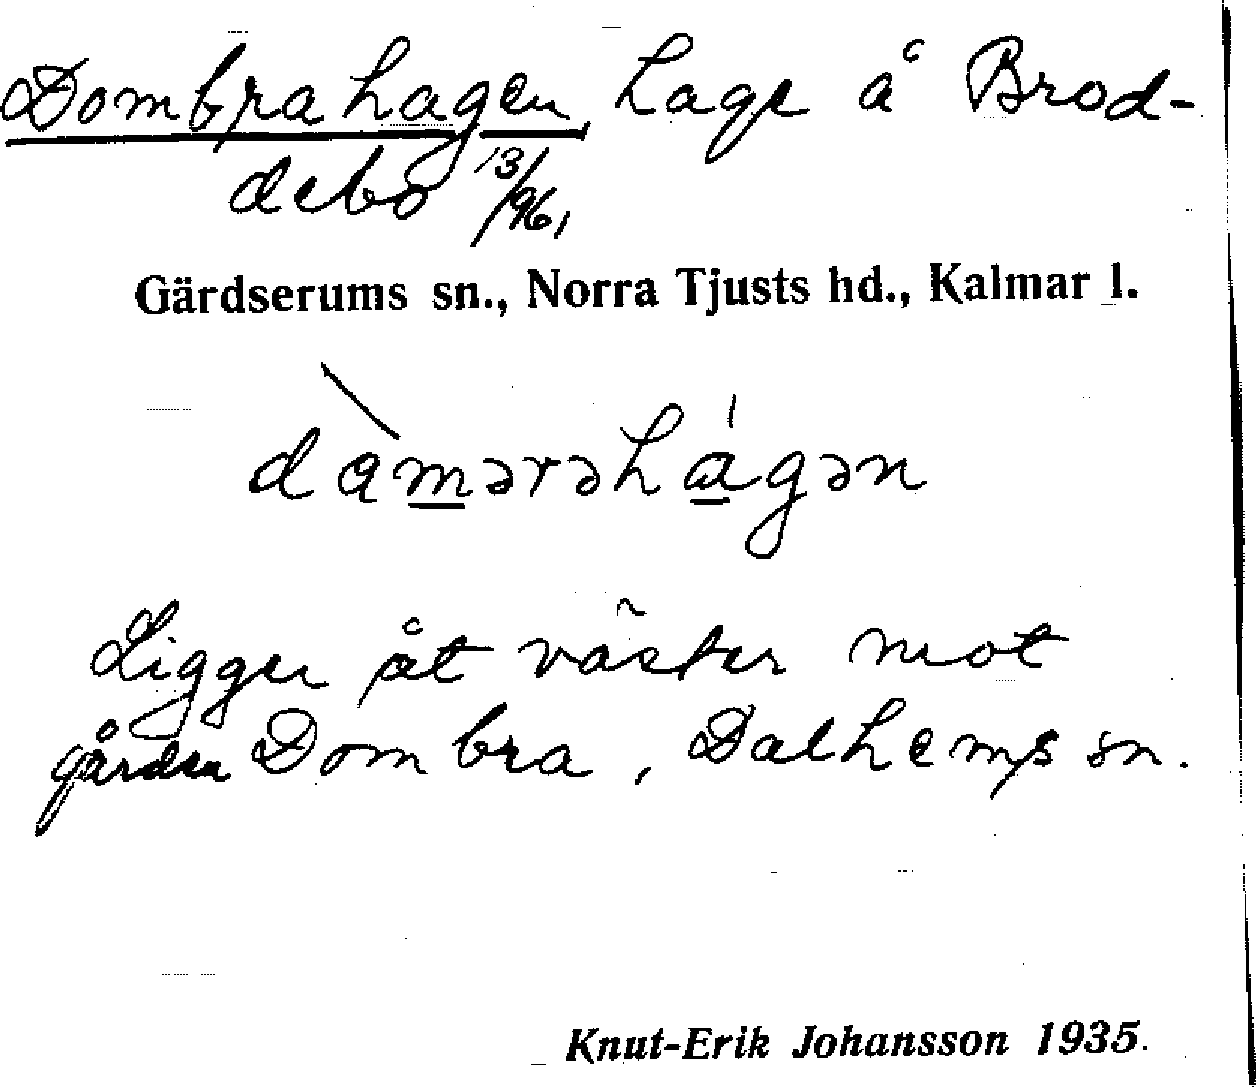 Dombrahagen, hage å Brod-
debo 13/96,
Gärdserums sn., Norra Tjusts hd., Kalmar l.
dàmərəhágən
Ligger åt väster mot
gården Dombra, Dalhems sn.
Knut-Erik Johansson 1935.